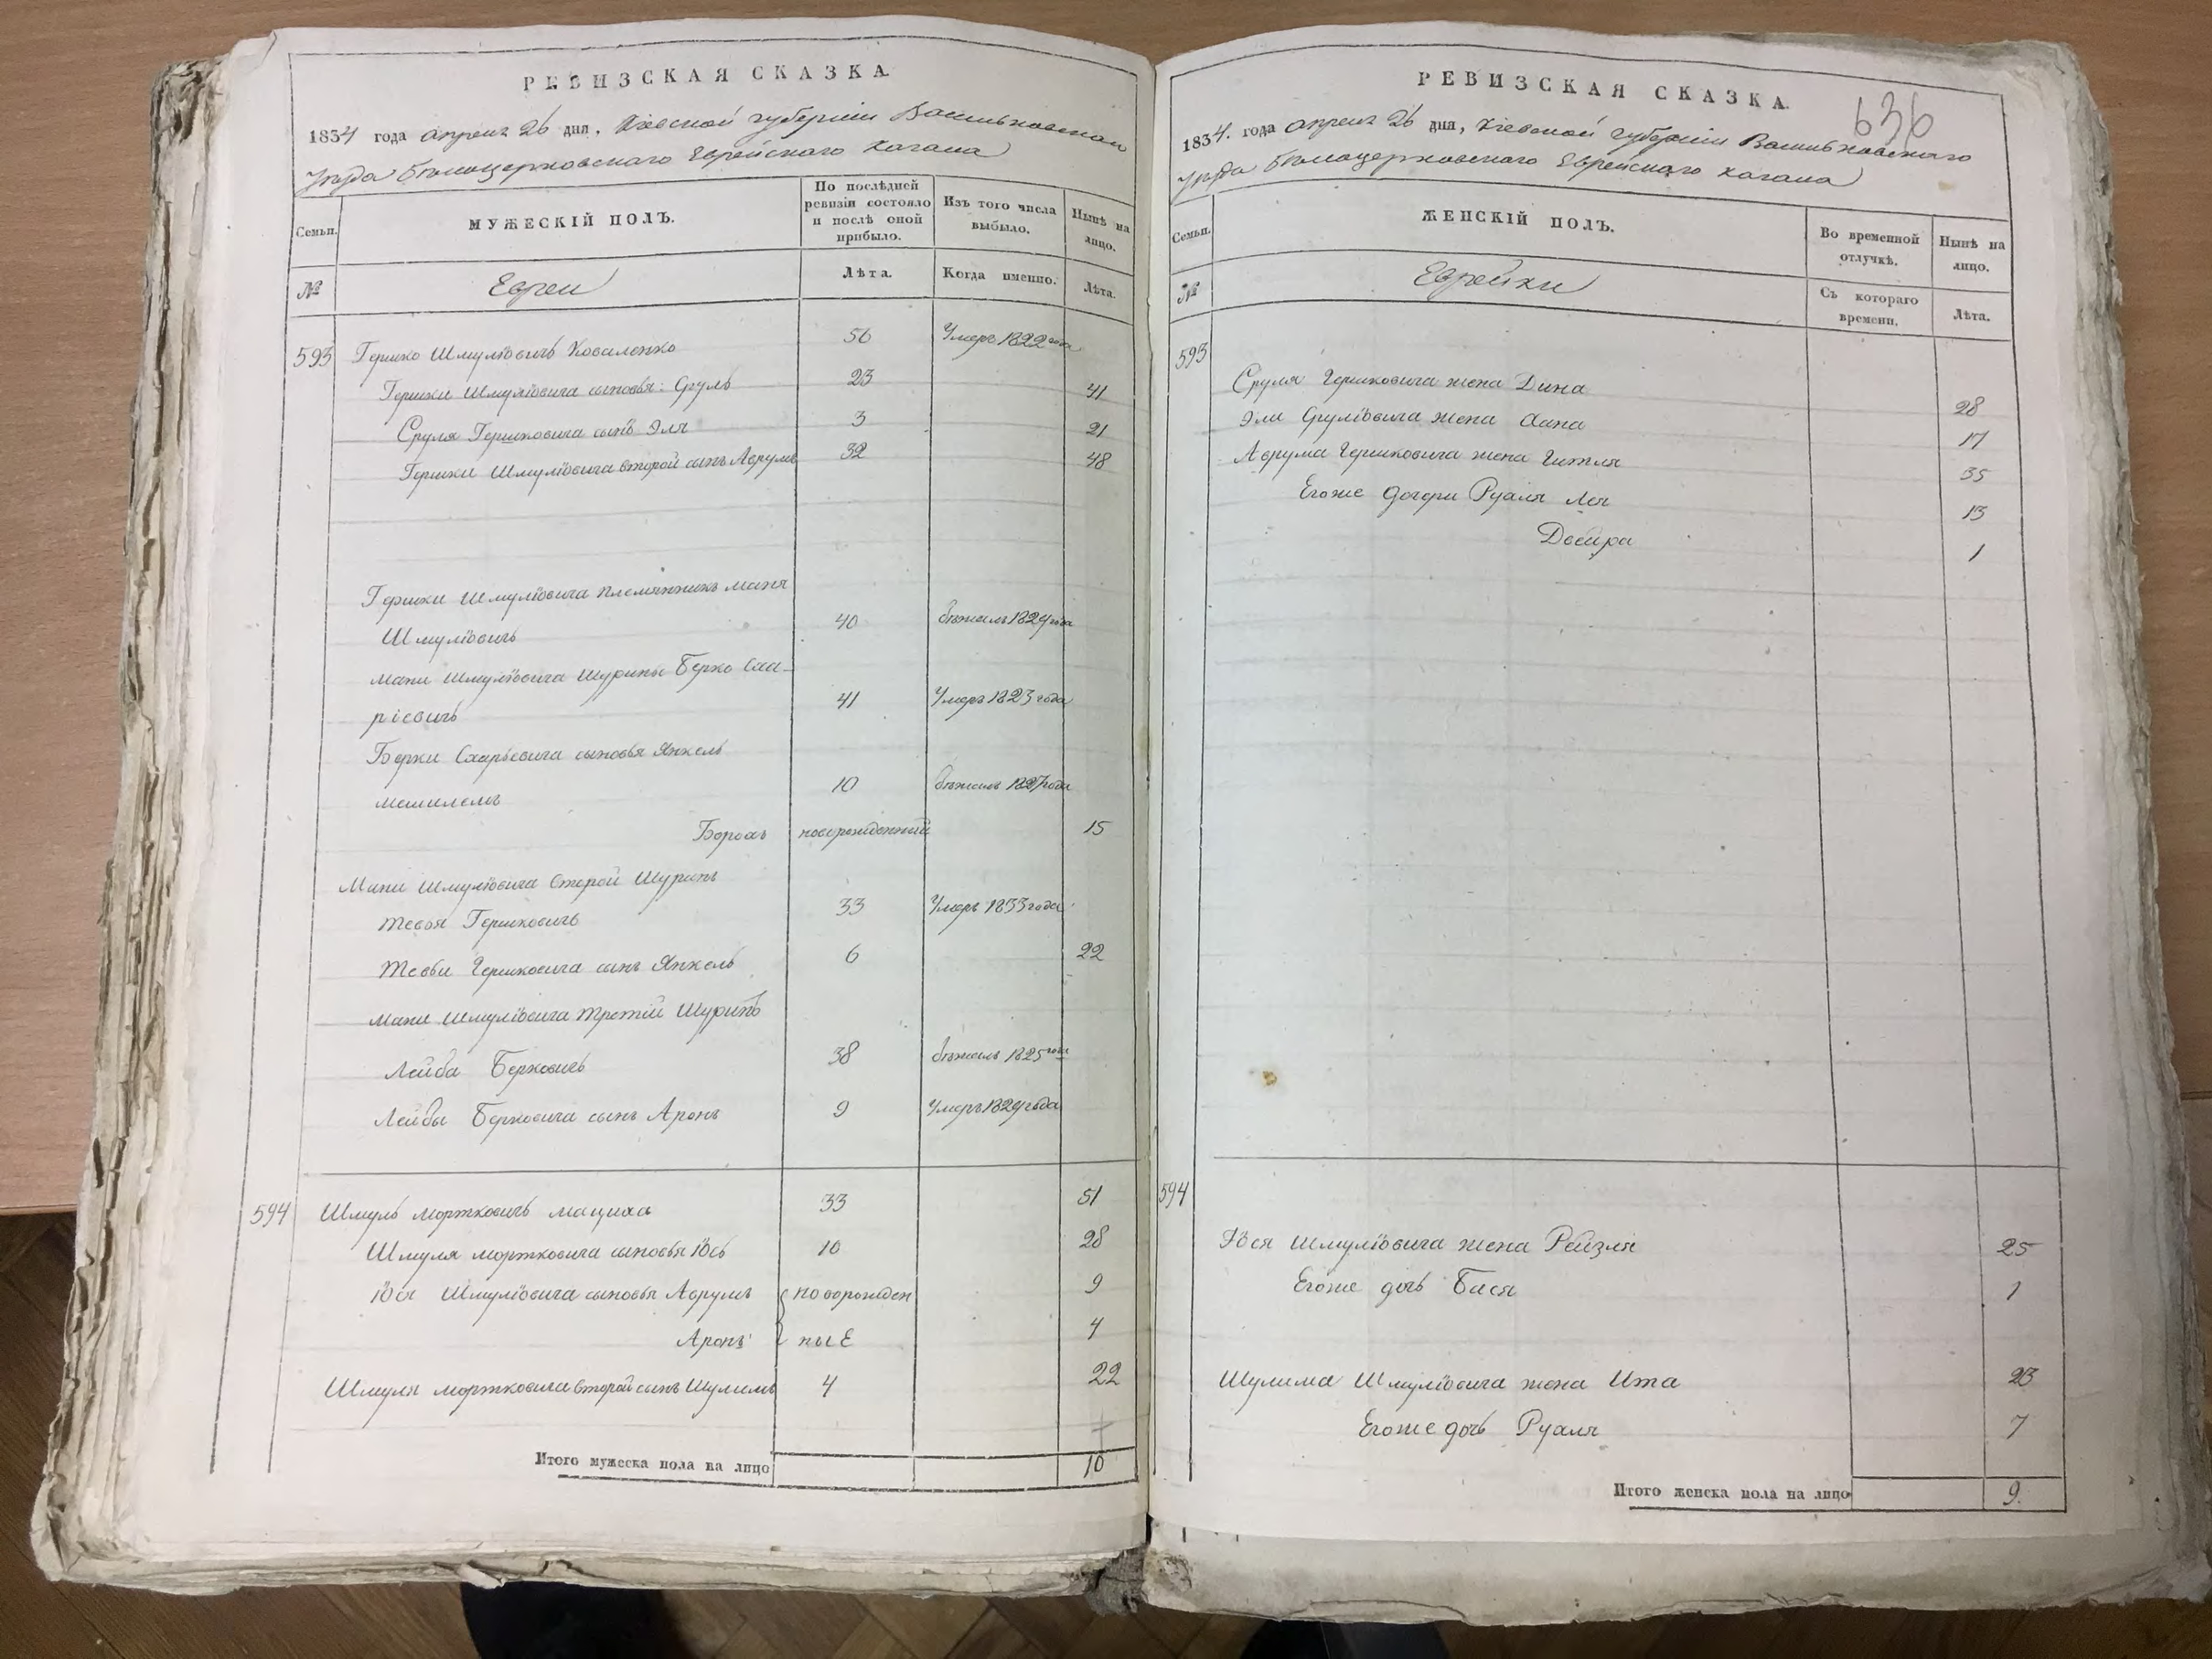 РЕВИЗСКАЯ СКАЗКА
1834 года апреля 26 дня, Кіевской губерніи Васильковскаго
уѣзда Бѣлоцерковскаго Еврейскаго кагала
Семьи.
МУЖЕСКІЙ ПОЛЪ.
По послѣдней ревизіи состояло и послѣ оной прибыло.
Изъ того числа выбыло.
Нынѣ на лицо.
№
Евреи
Лѣта.
Когда именно.
Лѣта.
593 Гершко Шмуліовичъ Коваленко 56 Умеръ 1822 года
Гершки Шмуліовича сыновья: Сруль 23 41
Сруля Гершковича сынъ Эля 3 21
Гершки Шмуліовича второй сынъ Аврумъ 32 48
Гершки Шмуліовича племянникъ Маня
Шмуліовичъ 40 бѣжалъ 1829 года
Мани Шмуліовича Шуринъ Берко
41 Умеръ 1823 года
Берки сыновья Янкель
10 бѣжалъ 1827 года
Борохъ новорожденный 15
Мани Шмуліовича второй Шуринъ
Тевья Гершковичъ 33 Умеръ 1833 года
Тевьи Гершковича сынъ Янкель 6 22
Мани Шмуліовича третій Шуринъ
Лейба Берковичъ 38 бѣжалъ 1825 года
Лейбы Берковича сынъ Аронъ 9 Умеръ 1829 года
594 Шмуль Мортковичъ Мациха 33 51
Шмуля Мортковича сыновья Іось 10 28
Іося Шмуліовича сыновья Аврумъ новорожден 9
Аронъ ные 4
Шмуля Мортковича второй сынъ Шулимъ 4 22
Итого мужеска пола на лицо 10
РЕВИЗСКАЯ СКАЗКА
636
1834. года апреля 26 дня, Кіевской губерніи Васильковскаго
уѣзда Бѣлоцерковскаго Еврейскаго кагала
Семьи.
ЖЕНСКІЙ ПОЛЪ.
Во временной отлучкѣ.
Нынѣ на лицо.
№
Еврейки
Съ котораго времени.
Лѣта.
593
Сруля Гершковича жена Дина 28
Эли Сруліовича жена Хана 17
Аврума Гершковича жена Гитля 35
Егоже дочери Рухля Лея 13
Двейра 1
594
Іося Шмуліовича жена Рейзля 25
Егоже дочь Бася 1
Шулима Шмуліовича жена Ита 23
Егоже дочь Рухля 7
Итого женска пола на лицо 9.